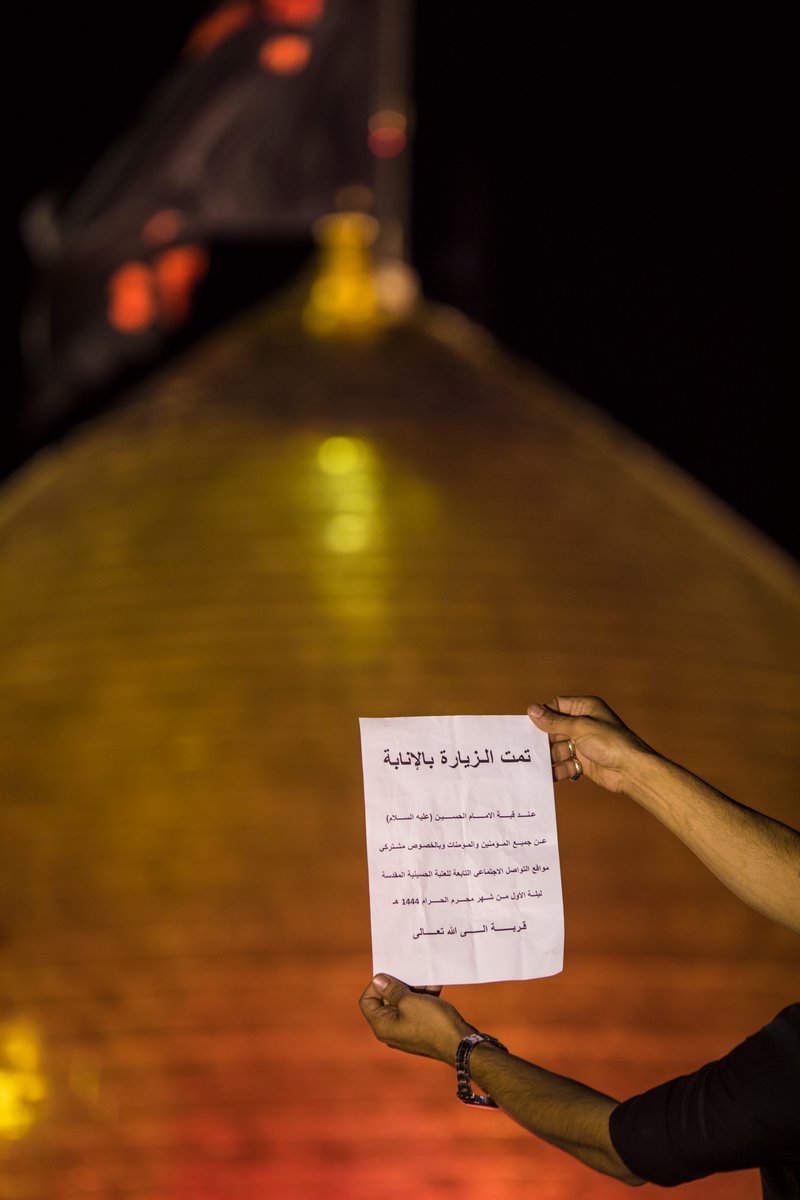 تمت الزيارة بالإنابة
عند قبة الامام الحسين (عليه السلام)
عن جميع المؤمنين والمؤمنات وبالخصوص مشتركي
مواقع التواصل الاجتماعي التابعة للعتبة الحسينية المقدسة
ليلة الأول من شهر محرم الحرام 1444 هـ
قربة الى الله تعالى